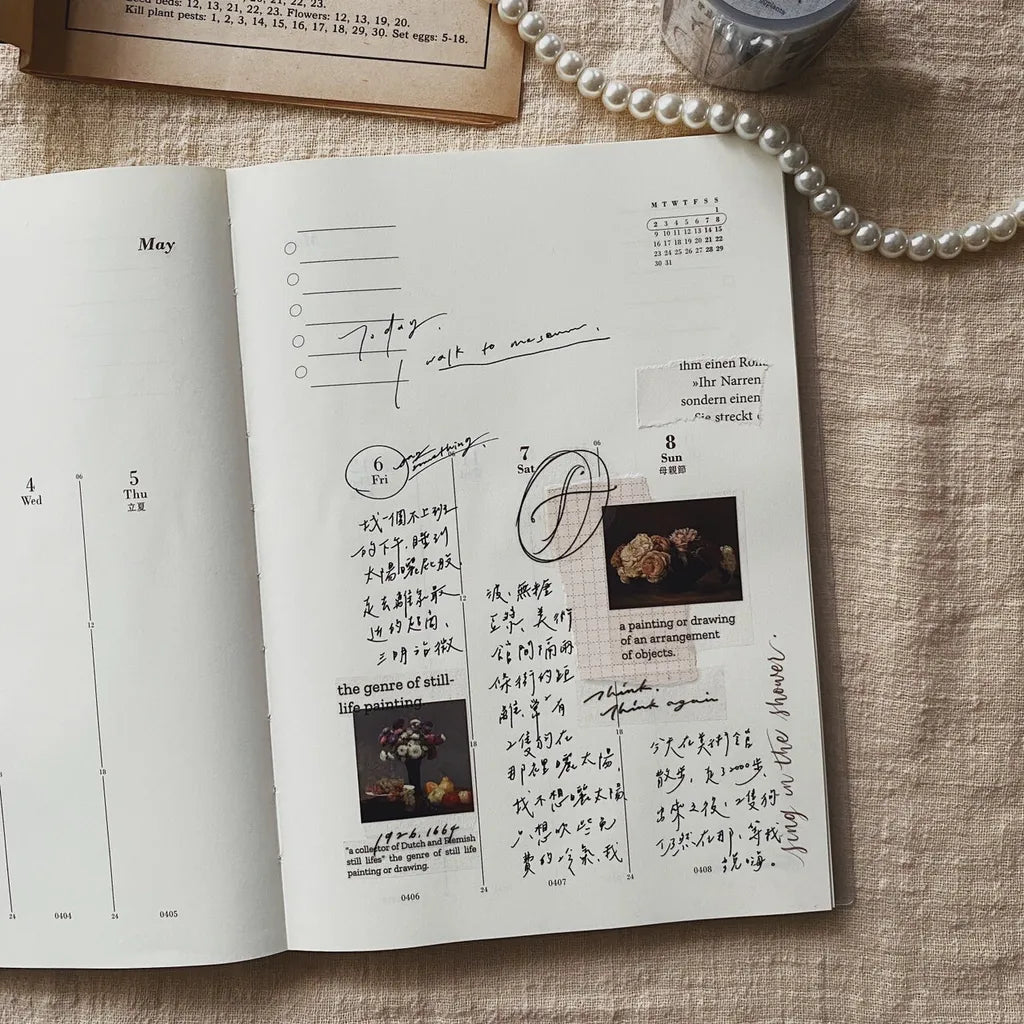 Seed beds: 12, 13, 21, 22, 23. Flowers: 12, 13, 19, 20.
Kill plant pests: 1, 2, 3, 14, 15, 16, 17, 18, 29, 30. Set eggs: 5-18.
May
M T W T F S S
1
2 3 4 5 6 7 8
9 10 11 12 13 14 15
16 17 18 19 20 21 22
23 24 25 26 27 28 29
30 31
Today.
walk to museum.
ihm einen Rom
»Ihr Narren
sondern einen
Sie streckt
4
Wed
06
12
18
24
0404
5
Thu
立夏
0405
6
Fri
something.
找一個不上班
的下午.睡到
太陽曬屁股
走去離家最
近的超商、
三明治微
the genre of still-
life painting
1926.1664
"a collector of Dutch and Flemish
still lifes" the genre of still life
painting or drawing.
0406
7
Sat
波、無糖
豆漿、美術
館間隔兩
條街的距
離、常有
2隻狗在
那裡曬太陽,
我不想曬太陽
只想吹些免
費的冷氣.我
0407
8
Sun
母親節
a painting or drawing
of an arrangement
of objects.
think.
think again
今天在美術館
散步,走了2000步,
出來之後,2隻狗
仍然在那,等我
說嗨。
0408
sing in the shower.